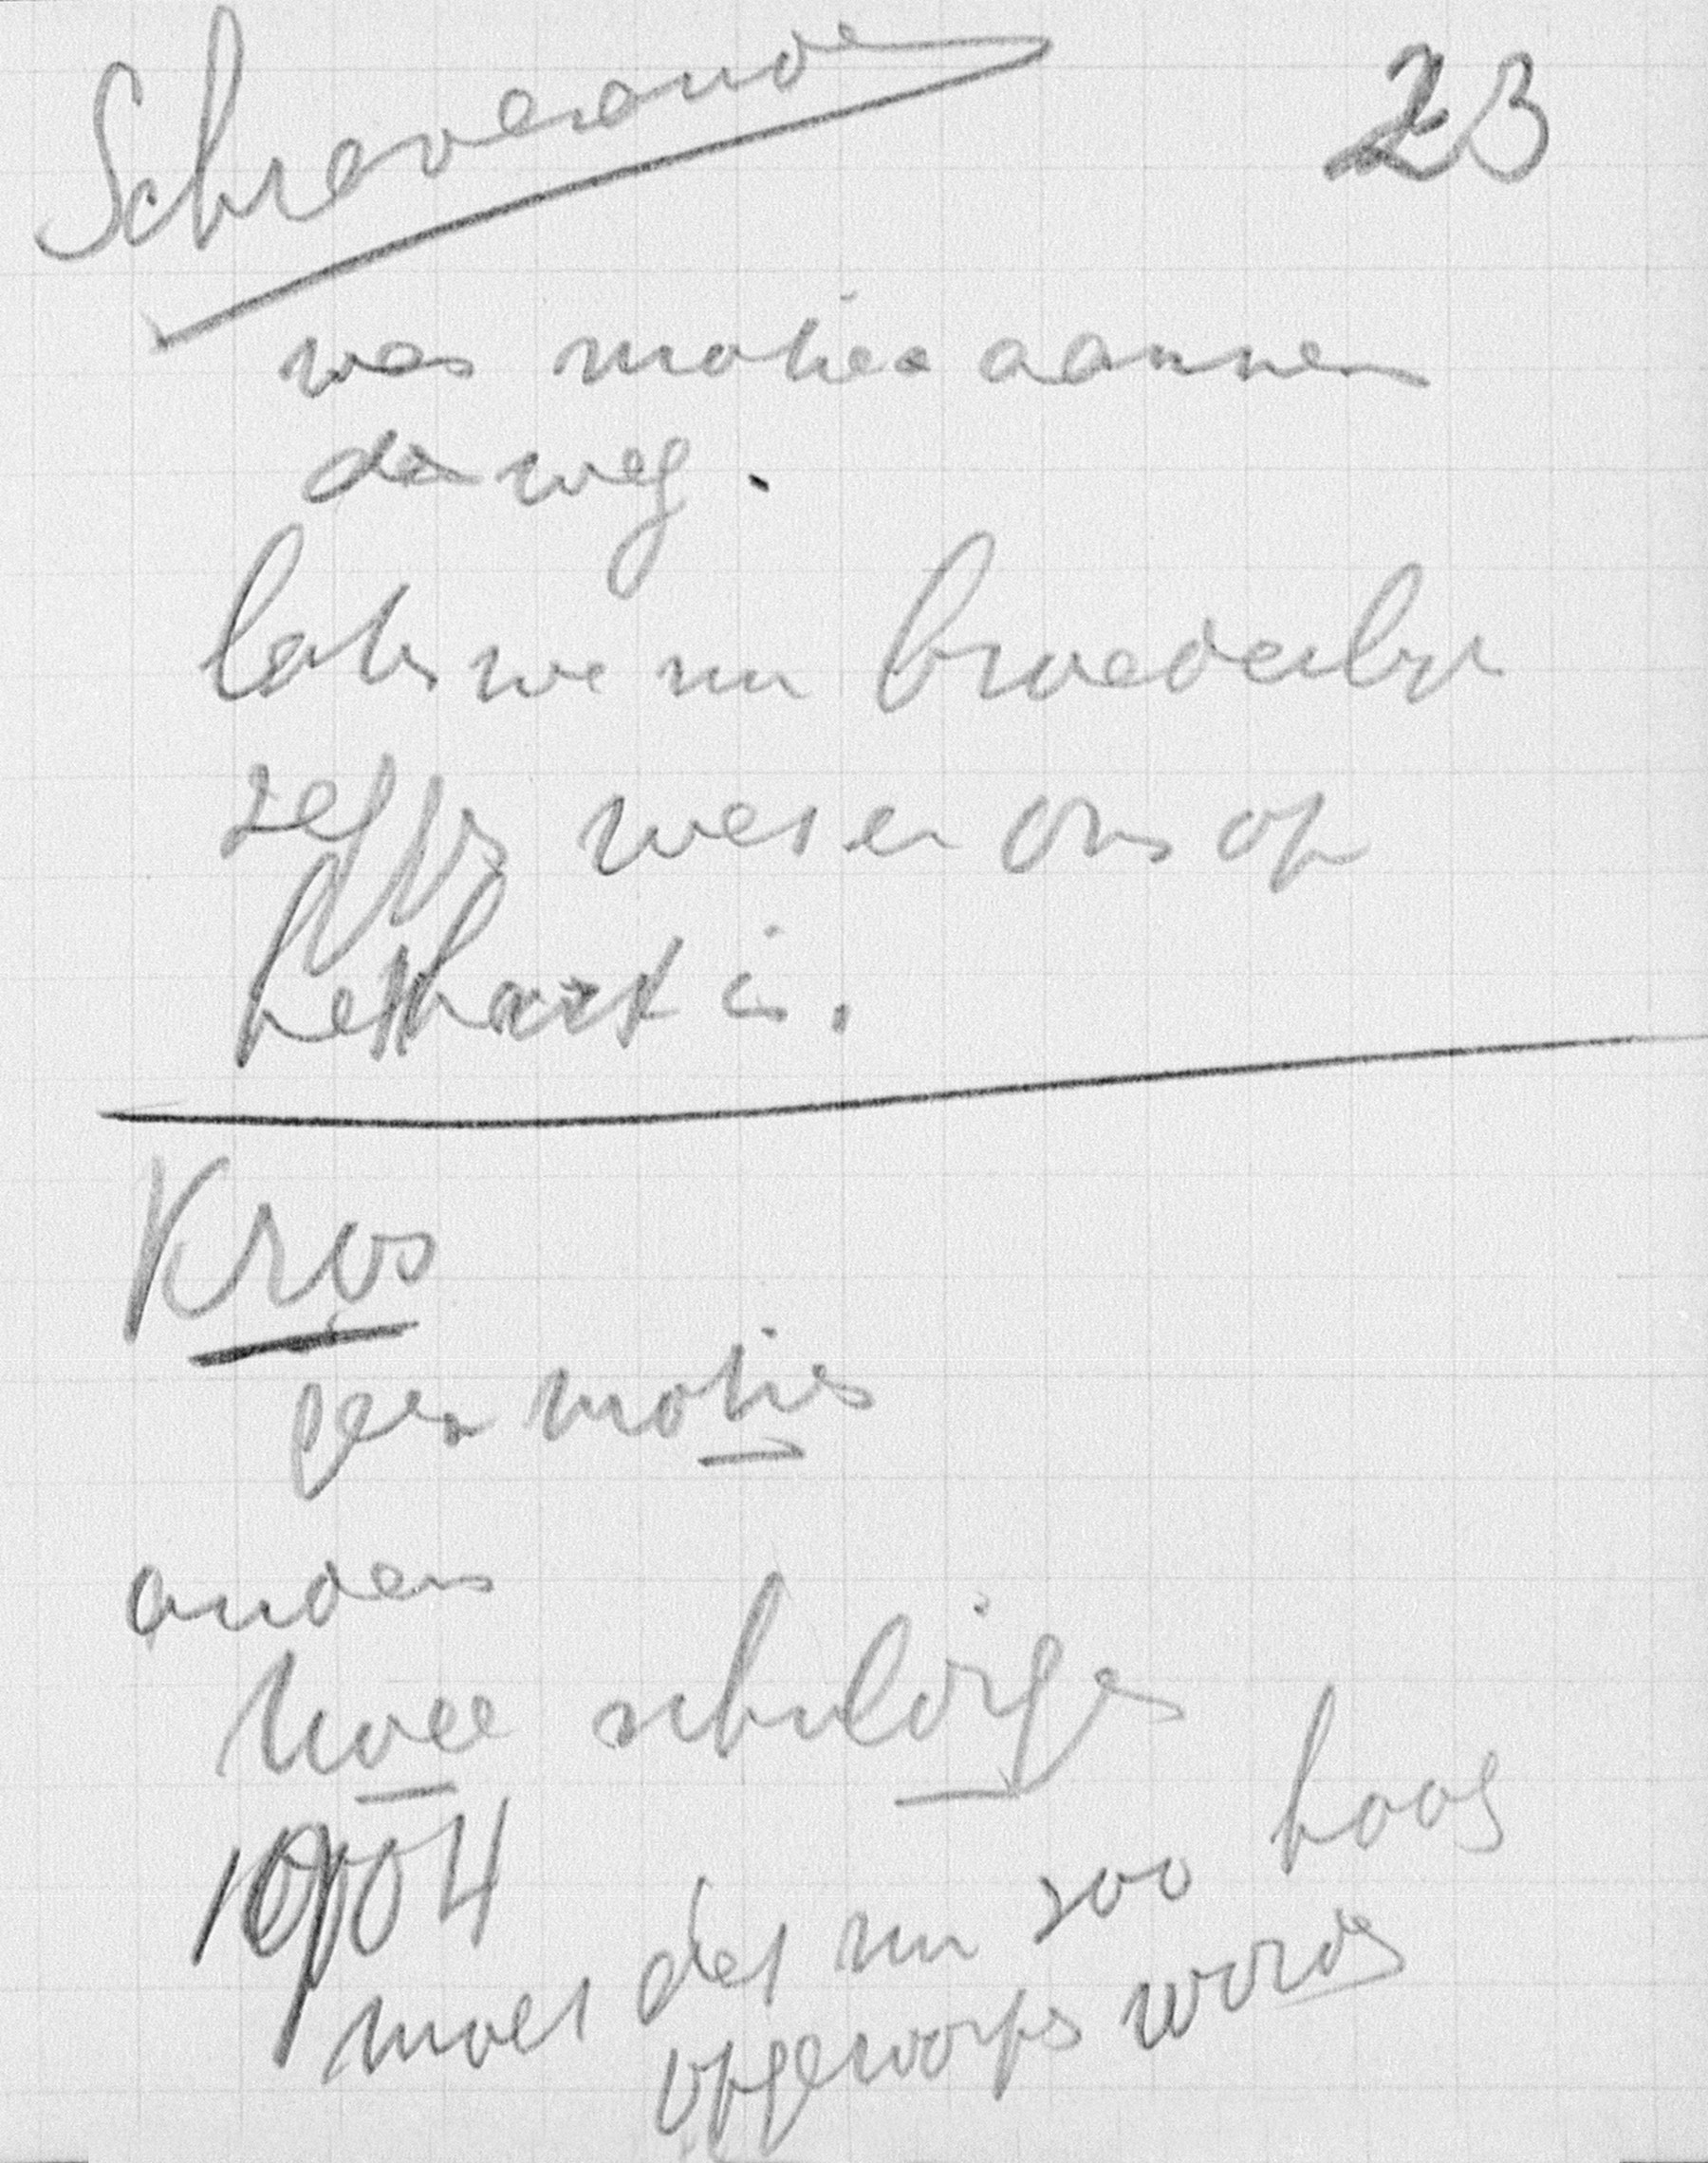 23
was motie aannen
de weg.
Laten we nu broederlijk
zeggen wat er ons op
het hart is.
Kros
geen moties
anders
twee schuldigen
1904
moet dat nu zoo hoog
opgeworpen worden